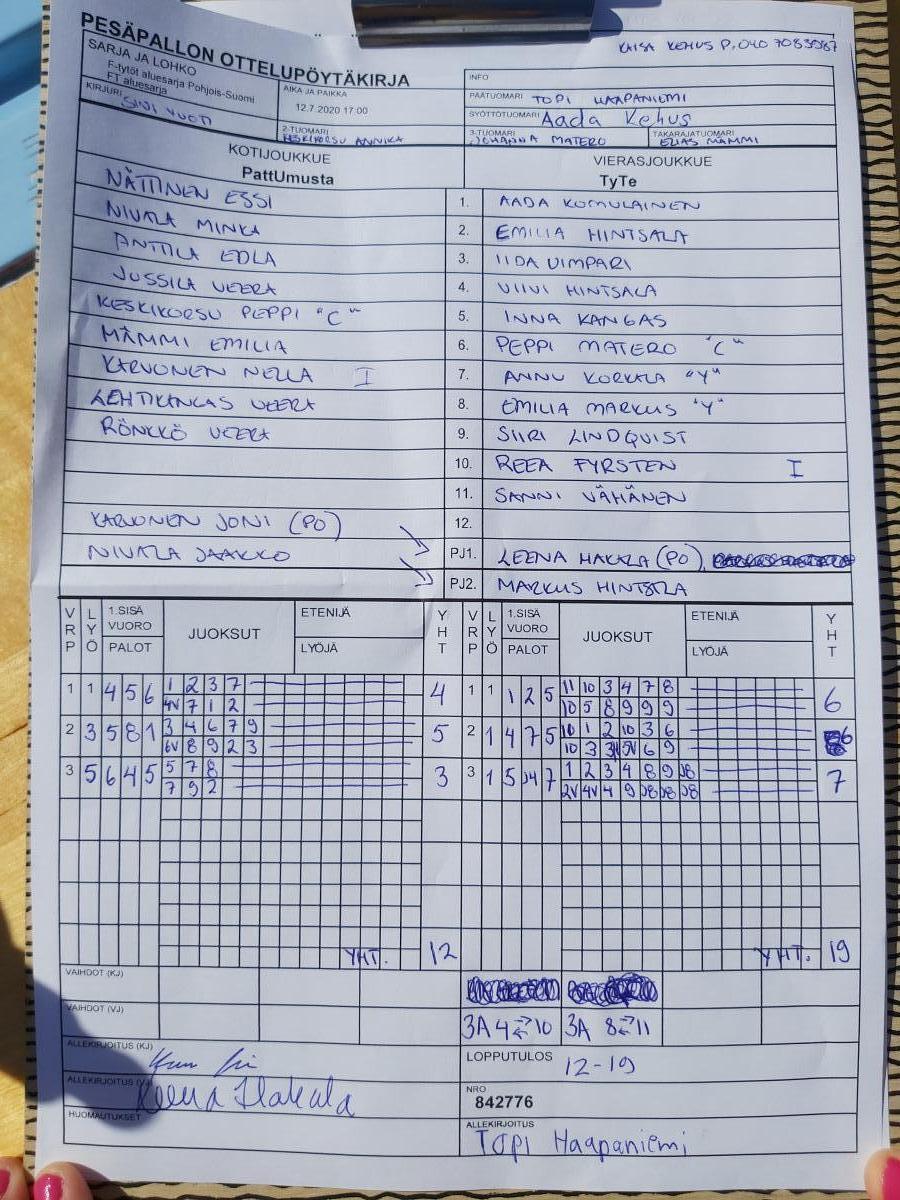 KAISA KEHUS P. 040 7083587
PESÄPALLON OTTELUPÖYTÄKIRJA
SARJA JA LOHKO
F-tytöt aluesarja Pohjois-Suomi
FT aluesarja
KIRJURI
SINI VUOTI
AIKA JA PAIKKA
12.7.2020 17:00
2-TUOMARI
KESKIKORSU ANNIKA
INFO
PÄÄTUOMARI TOPI HAAPANIEMI
SYÖTTÖTUOMARI Aada Kehus
3-TUOMARI JOHANNA MATERO
TAKARAJATUOMARI ELIAS MÄMMI
KOTIJOUKKUE VIERASJOUKKUE
PattUmusta TyTe
NÄTTINEN ESSI 1. AADA KOMULAINEN
NIVALA MINKA 2. EMILIA HINTSALA
ANTTILA EDLA 3. IIDA VIMPARI
JUSSILA VEERA 4. VIIVI HINTSALA
KESKIKORSU PEPPI "C" 5. INNA KANGAS
MÄMMI EMILIA 6. PEPPI MATERO "C"
KARVONEN NELLA I 7. ANNU KORKALA "Y"
LEHTIKANGAS VEERA 8. EMILIA MARKUS "Y"
RÖNKKÖ VEERA 9. SIIRI LINDQUIST
10. REEA FYRSTEN I
11. SANNI VÄHÄNEN
KARVONEN JONI (PO) 12.
NIVALA JAAKKO PJ1. LEENA HAKALA (PO)
PJ2. MARKUS HINTSALA
VRP LYÖ 1.SISÄ VUORO PALOT JUOKSUT ETENIJÄ LYÖJÄ YHT VRP LYÖ 1.SISÄ VUORO PALOT JUOKSUT ETENIJÄ LYÖJÄ YHT
1 1 4 5 6 1 2 3 7 4 1 1 1 2 5 11 10 3 4 7 8 6
4V 7 1 2 10 5 8 9 9 9
2 3 5 8 1 3 4 6 7 9 5 2 1 4 7 5 10 1 2 10 3 6 6
6V 8 9 2 3 10 3 3V 5V 6 9
3 5 6 4 5 5 7 8 3 3 1 5 J4 7 1 2 3 4 8 9 J8 7
7 9 2 2V 4V 4 9 J8 J8 J8
YHT. 12 YHT. 19
VAIHDOT (KJ)
VAIHDOT (VJ) 3A 4⇄10 3A 8⇄11
ALLEKIRJOITUS (KJ)
LOPPUTULOS
12-19
ALLEKIRJOITUS (VJ)
Leena Hakala
NRO
842776
HUOMAUTUKSET
ALLEKIRJOITUS
Topi Haapaniemi